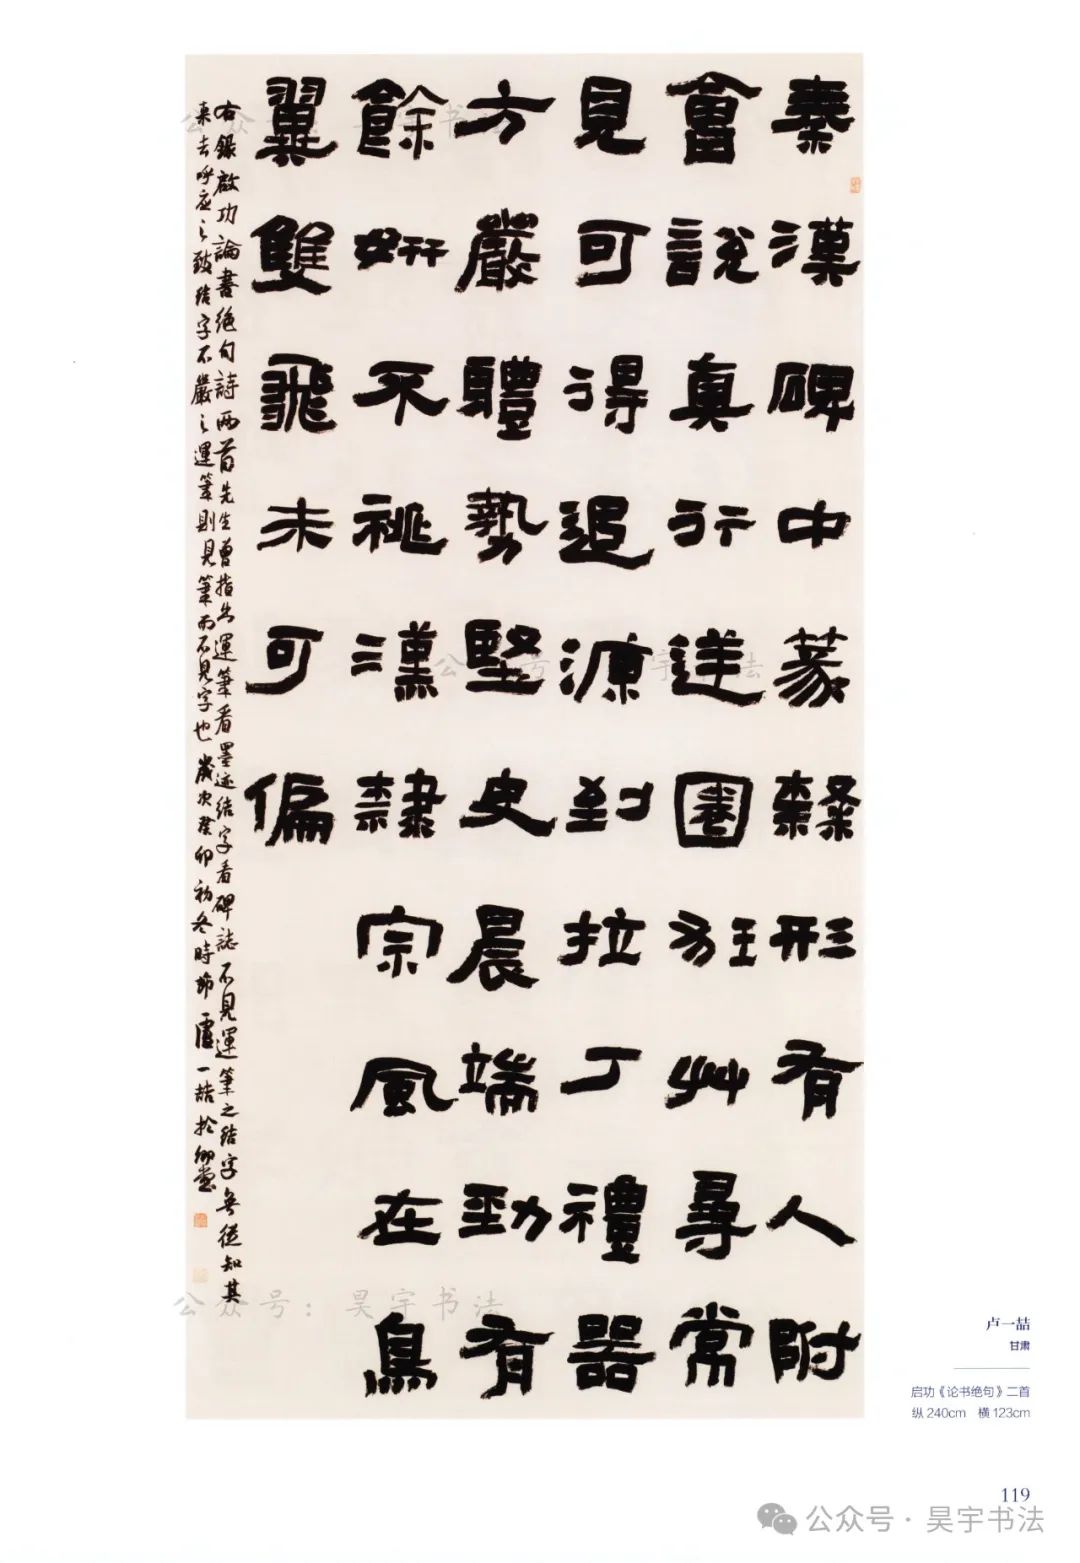 秦漢碑中篆隸形有人附
會說真行逆圈狂艸尋常
見可得追源到拉丁禮器
方嚴體勢堅史晨端勁有
餘妍不祧漢隸宗風在鳥
翼雙飛未可偏
右錄啟功論書絕句詩两首先生曾指出運筆看墨迹結字看碑誌不見運筆之結字無從知其
來去呼应之致結字不嚴之運筆則見筆而不見字也歲次癸卯初冬時節盧一喆於
公众号：昊宇书法
公众号：昊宇书法
公众号：昊宇书法
卢一喆
甘肃
启功《论书绝句》二首
纵 240cm 横 123cm
119
公众号·昊宇书法